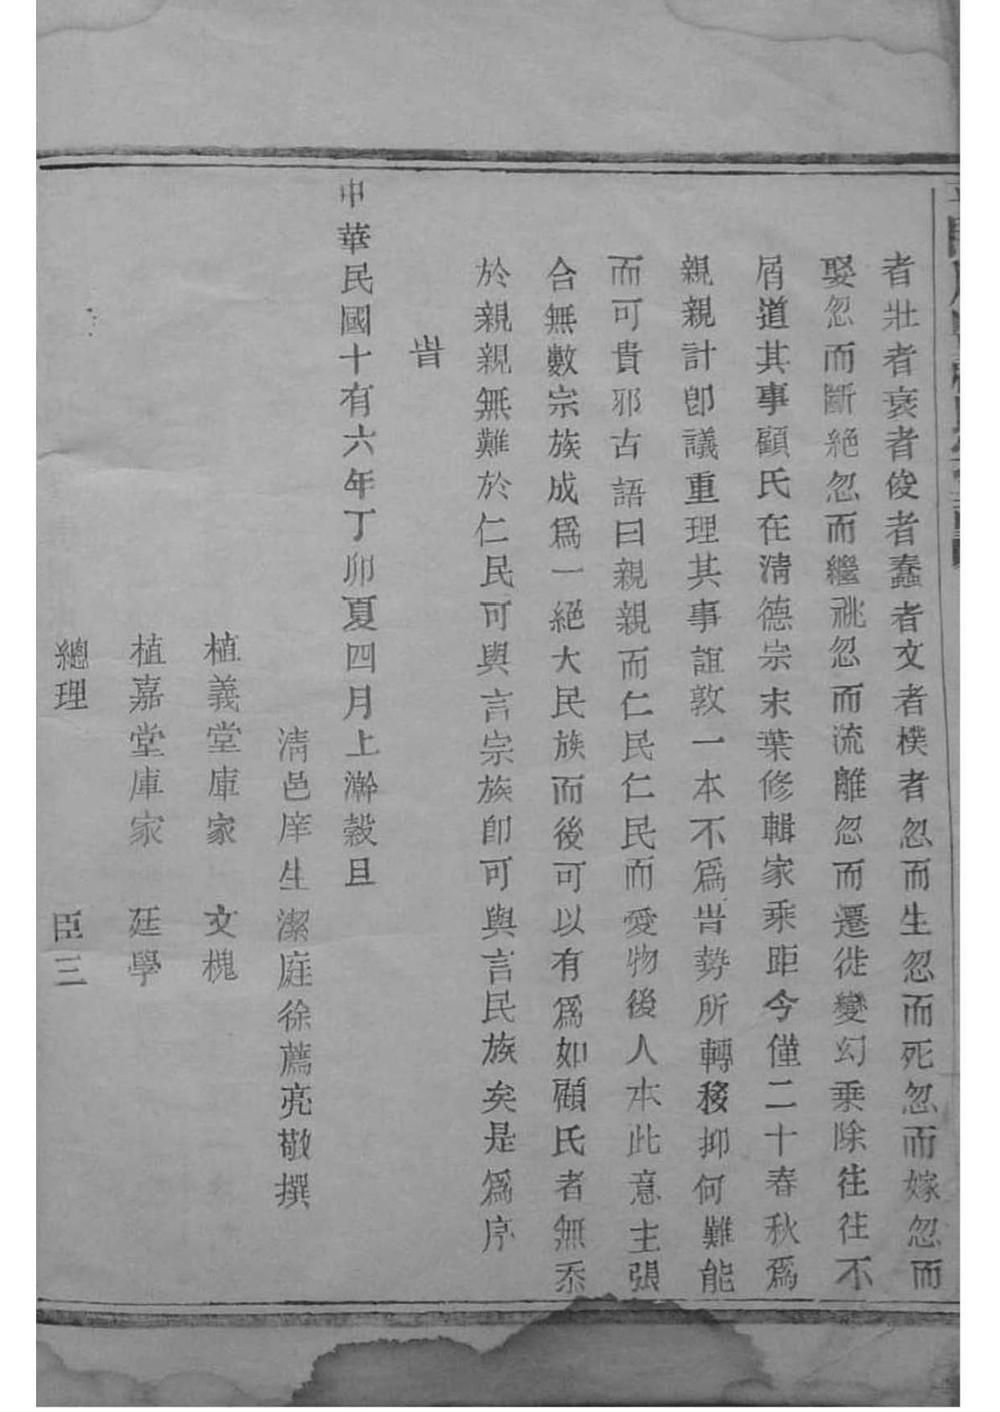 者壯者衰者俊者蠢者文者樸者忽而生忽而死忽而嫁忽而
娶忽而斷絕忽而繼祧忽而流離忽而遷徙變幻乘除往往不
屑道其事顧氏在淸德宗末葉修輯家乘距今僅二十春秋爲
親親計卽議重理其事誼敦一本不爲旹勢所轉移抑何難能
而可貴邪古語曰親親而仁民仁民而愛物後人本此意主張
合無數宗族成爲一絕大民族而後可以有爲如顧氏者無忝
於親親無難於仁民可與言宗族卽可與言民族矣是爲序
旹
中華民國十有六年丁卯夏四月上澣榖旦
淸邑庠生潔庭徐薦亮敬撰
植義堂庫家 文槐
植嘉堂庫家 廷學
總理 臣三